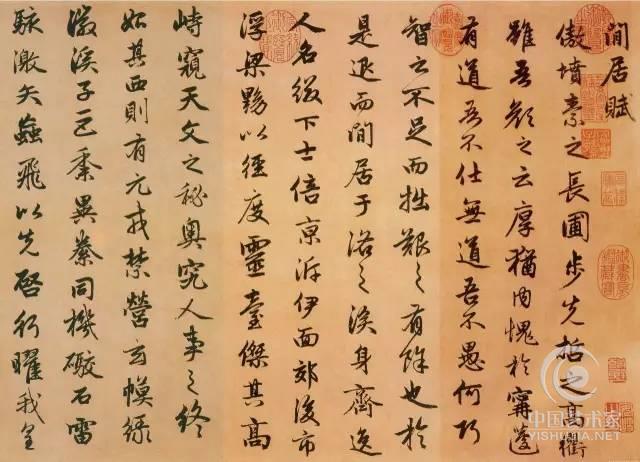 閒居賦
傲墳素之長圃步先哲之高衢
雖吾顏之云厚猶內愧於甯蘧
有道吾不仕無道吾不愚何巧
智之不足而拙艱之有餘也於
是退而閒居于洛之涘身齊逸
人名綴下士倍京泝伊面郊後市
浮梁黝以徑度靈臺傑其高
峙窺天文之秘奧究人事之終
始其西則有元戎禁營玄幙綠
徽溪子巨黍異絭同機礮石雷
駭激矢蝱飛以先啓行曜我皇
中国艺术家